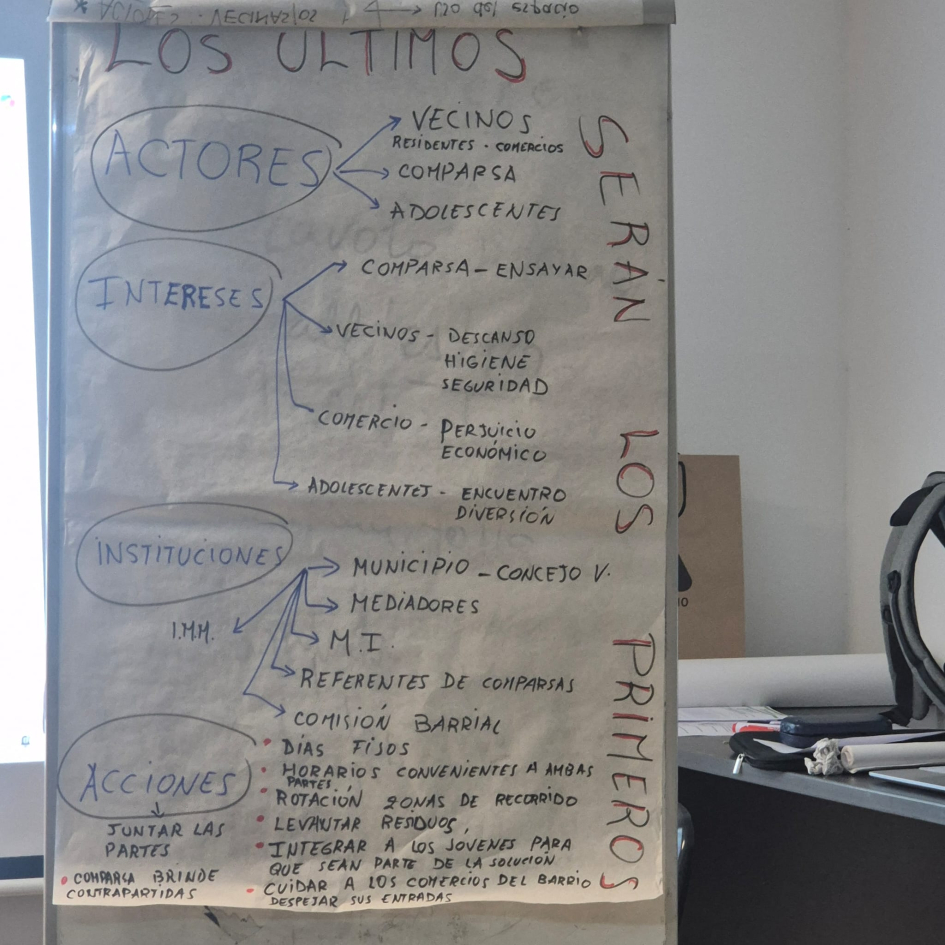 LOS ULTIMOS
SERÁN LOS PRIMEROS
ACTORES
VECINOS
RESIDENTES - COMERCIOS
COMPARSA
ADOLESCENTES
INTERESES
COMPARSA - ENSAYAR
VECINOS - DESCANSO
HIGIENE
SEGURIDAD
COMERCIO - PERJUICIO
ECONÓMICO
ADOLESCENTES - ENCUENTRO
DIVERSIÓN
INSTITUCIONES
MUNICIPIO - CONCEJO V.
MEDIADORES
I.M.M.
M.I.
REFERENTES DE COMPARSAS
COMISIÓN BARRIAL
ACCIONES
JUNTAR LAS
PARTES
• COMPARSA BRINDE
CONTRAPARTIDAS
• DÍAS FIJOS
• HORARIOS CONVENIENTES A AMBAS
PARTES.
• ROTACIÓN ZONAS DE RECORRIDO
• LEVANTAR RESIDUOS,
• INTEGRAR A LOS JOVENES PARA
QUE SEAN PARTE DE LA SOLUCIÓN
• CUIDAR A LOS COMERCIOS DEL BARRIO
DESPEJAR SUS ENTRADAS